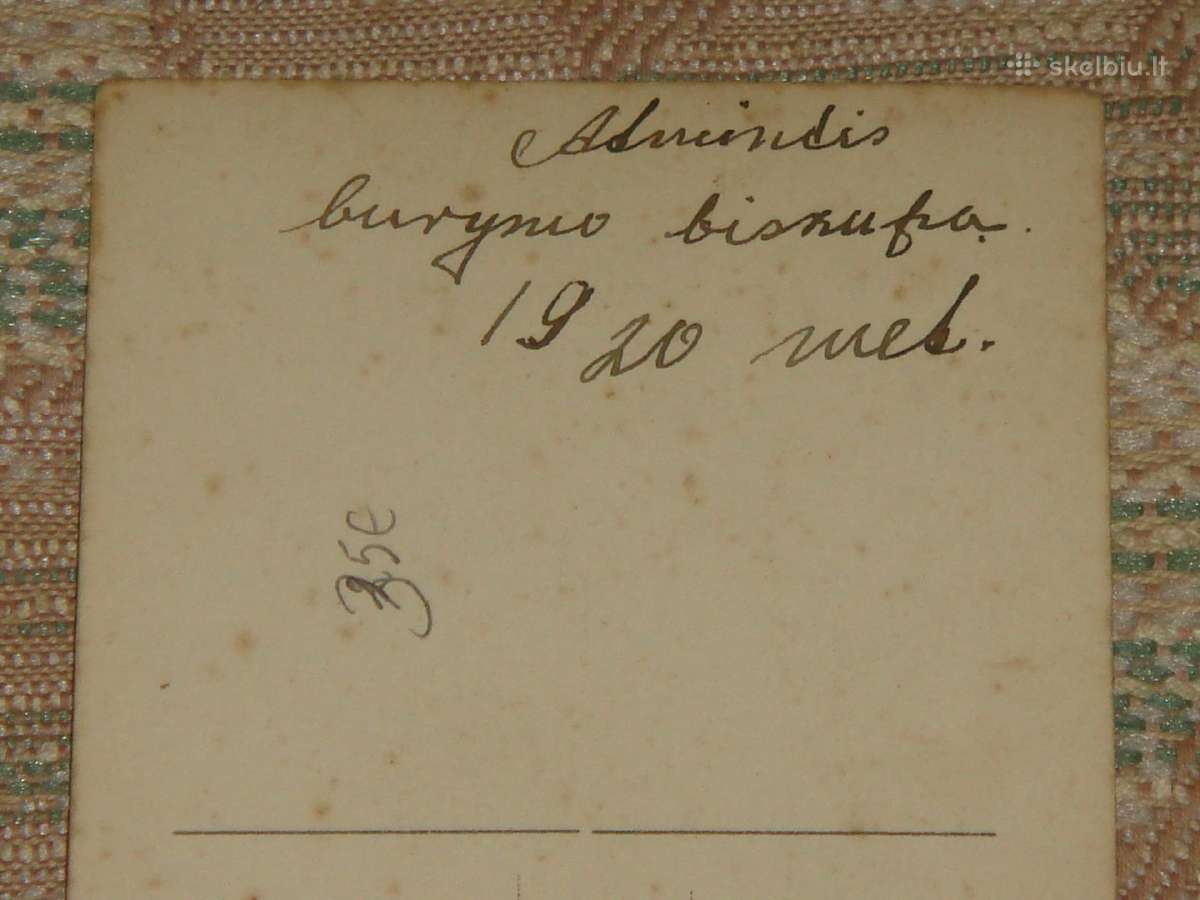 skelbiu.lt
Atmintis
burymo biskupa.
1920 met.
35€